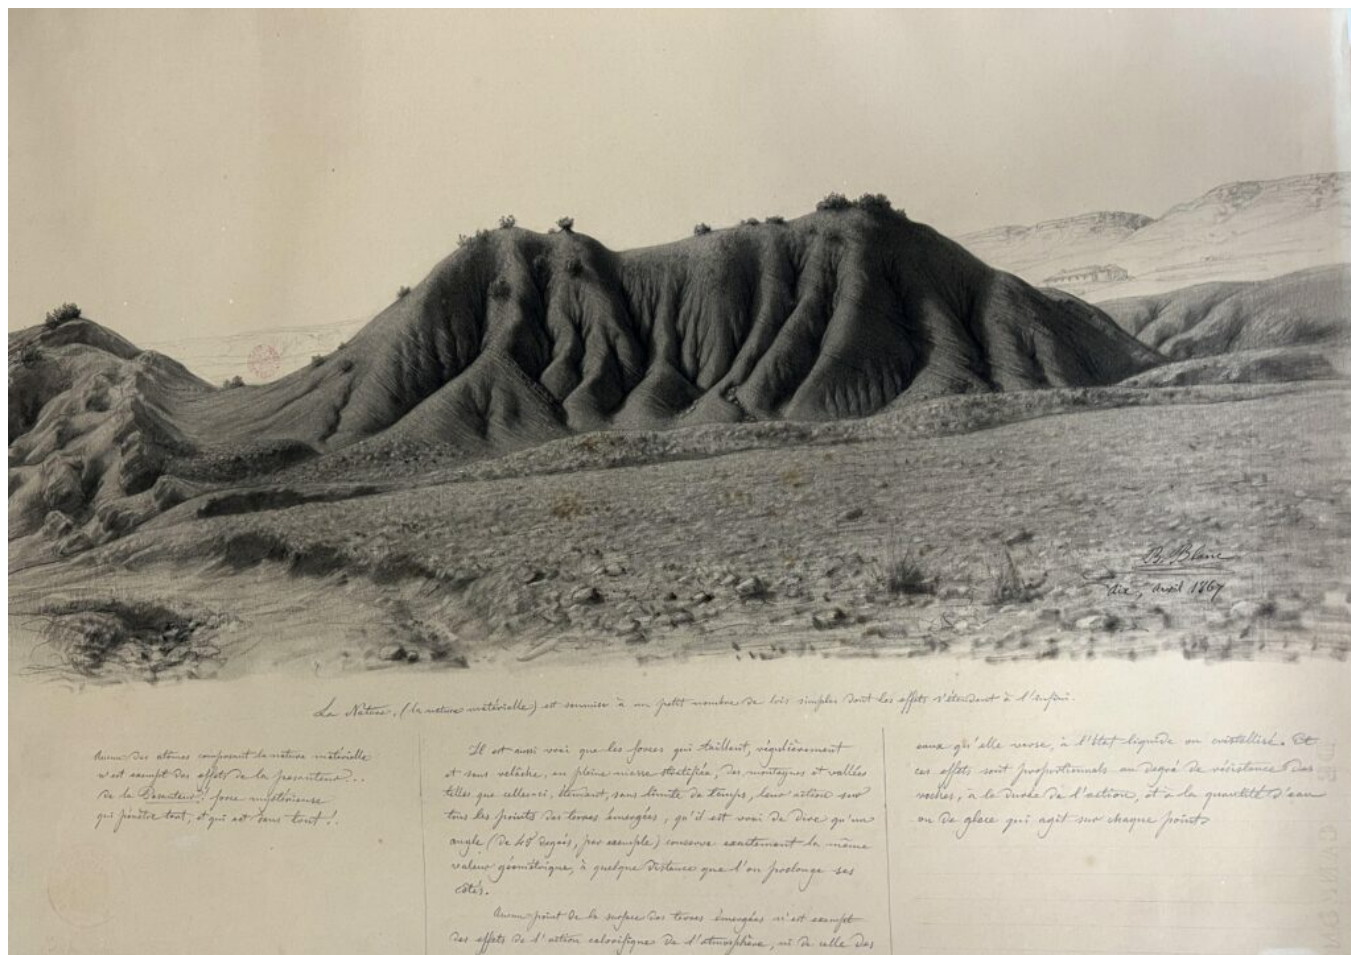 B. Blanc
aix, avril 1867
La Nature, (la nature matérielle) est soumise à un petit nombre de lois simples dont les effets s'étendent à l'infini.
Aucun des atômes composant la nature matérielle
n'est exempt des effets de la pesanteur...
de la Pesanteur! force mystérieuse
qui pénètre tout, et qui est dans tout!.
Il est aussi vrai que les forces qui taillent, régulièrement
et sans relâche, en pleine masse stratifiée, des montagnes et vallées
telles que celles-ci, étendent, sans limite de temps, leur action sur
tous les points des terres émergées, qu'il est vrai de dire qu'un
angle (de 40 degrés, par exemple) conserve exactement la même
valeur géométrique, à quelque distance que l'on prolonge ses
côtés.
Aucun point de la surface des terres émergées n'est exempt
des effets de l'action calorifique de l'atmosphère, ni de celle des
eaux qu'elle verse, à l'état liquide ou cristallisé. Et
ces effets sont proportionnels au degré de résistance des
roches, à la durée de l'action, et à la quantité d'eau
ou de glace qui agit sur chaque point.